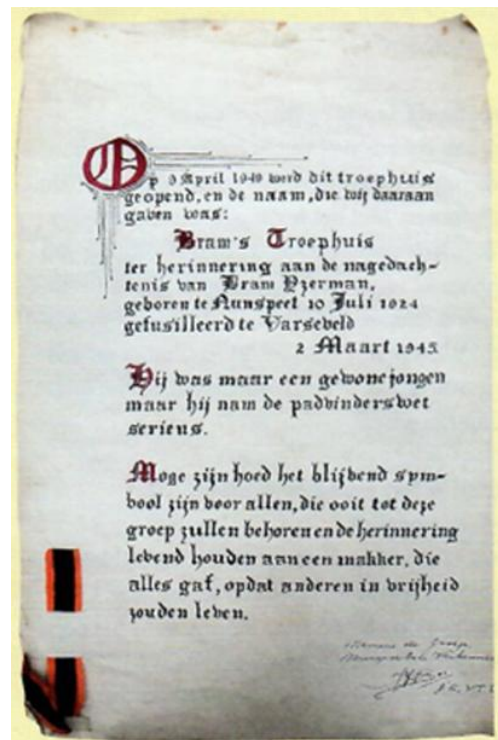 Op 9 April 1949 werd dit troephuis
geopend, en de naam, die wij daaraan
gaven was:
Bram's Troephuis
ter herinnering aan de nagedach-
tenis van Bram Yzerman,
geboren te Nunspeet 10 Juli 1924
gefusilleerd te Varseveld
2 Maart 1945.
Hij was maar een gewone jongen
maar hij nam de padvinderswet
serieus.
Moge zijn hoed het blijvend sym-
bool zijn voor allen, die ooit tot deze
groep zullen behoren en de herinnering
levend houden aan een makker, die
alles gaf, opdat anderen in vrijheid
zouden leven.
Namens de Groep